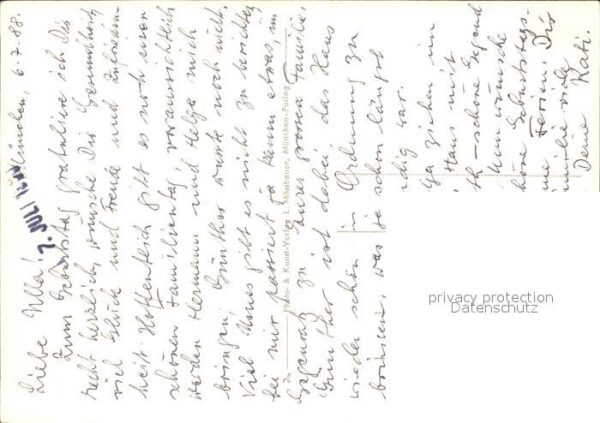 München, 6.7.88.
7. JULI 1988
Liebe Ulla!
Zum Geburtstag gratuliere ich Dir
recht herzlich, wünsche Dir Gesundheit
viel Glück und Freude und Zufrieden-
heit. Hoffentlich gibt es noch einen
schönen Familientag, voraussichtlich
werden Hermann und Helga mich
bringen. Günther wurde noch nicht.
Viel Neues gibt es nicht zu berichten
bei mir passiert ja kaum etwas, im
Gegensatz zu Eurer grossen Familie.
Günther ist dabei das Haus
wieder schön in Ordnung zu
bringen, was ja schon längst
ndig war.
ga ziehen in
Haus mit
th - schöne Gegend
Nun wünsche
höne Geburtstags-
ne Ferien. Dir
milie viele
Deine Kati.
Photo- & Kunst-Verlag L. Mösbauer, München-Pasing
privacy protection
Datenschutz